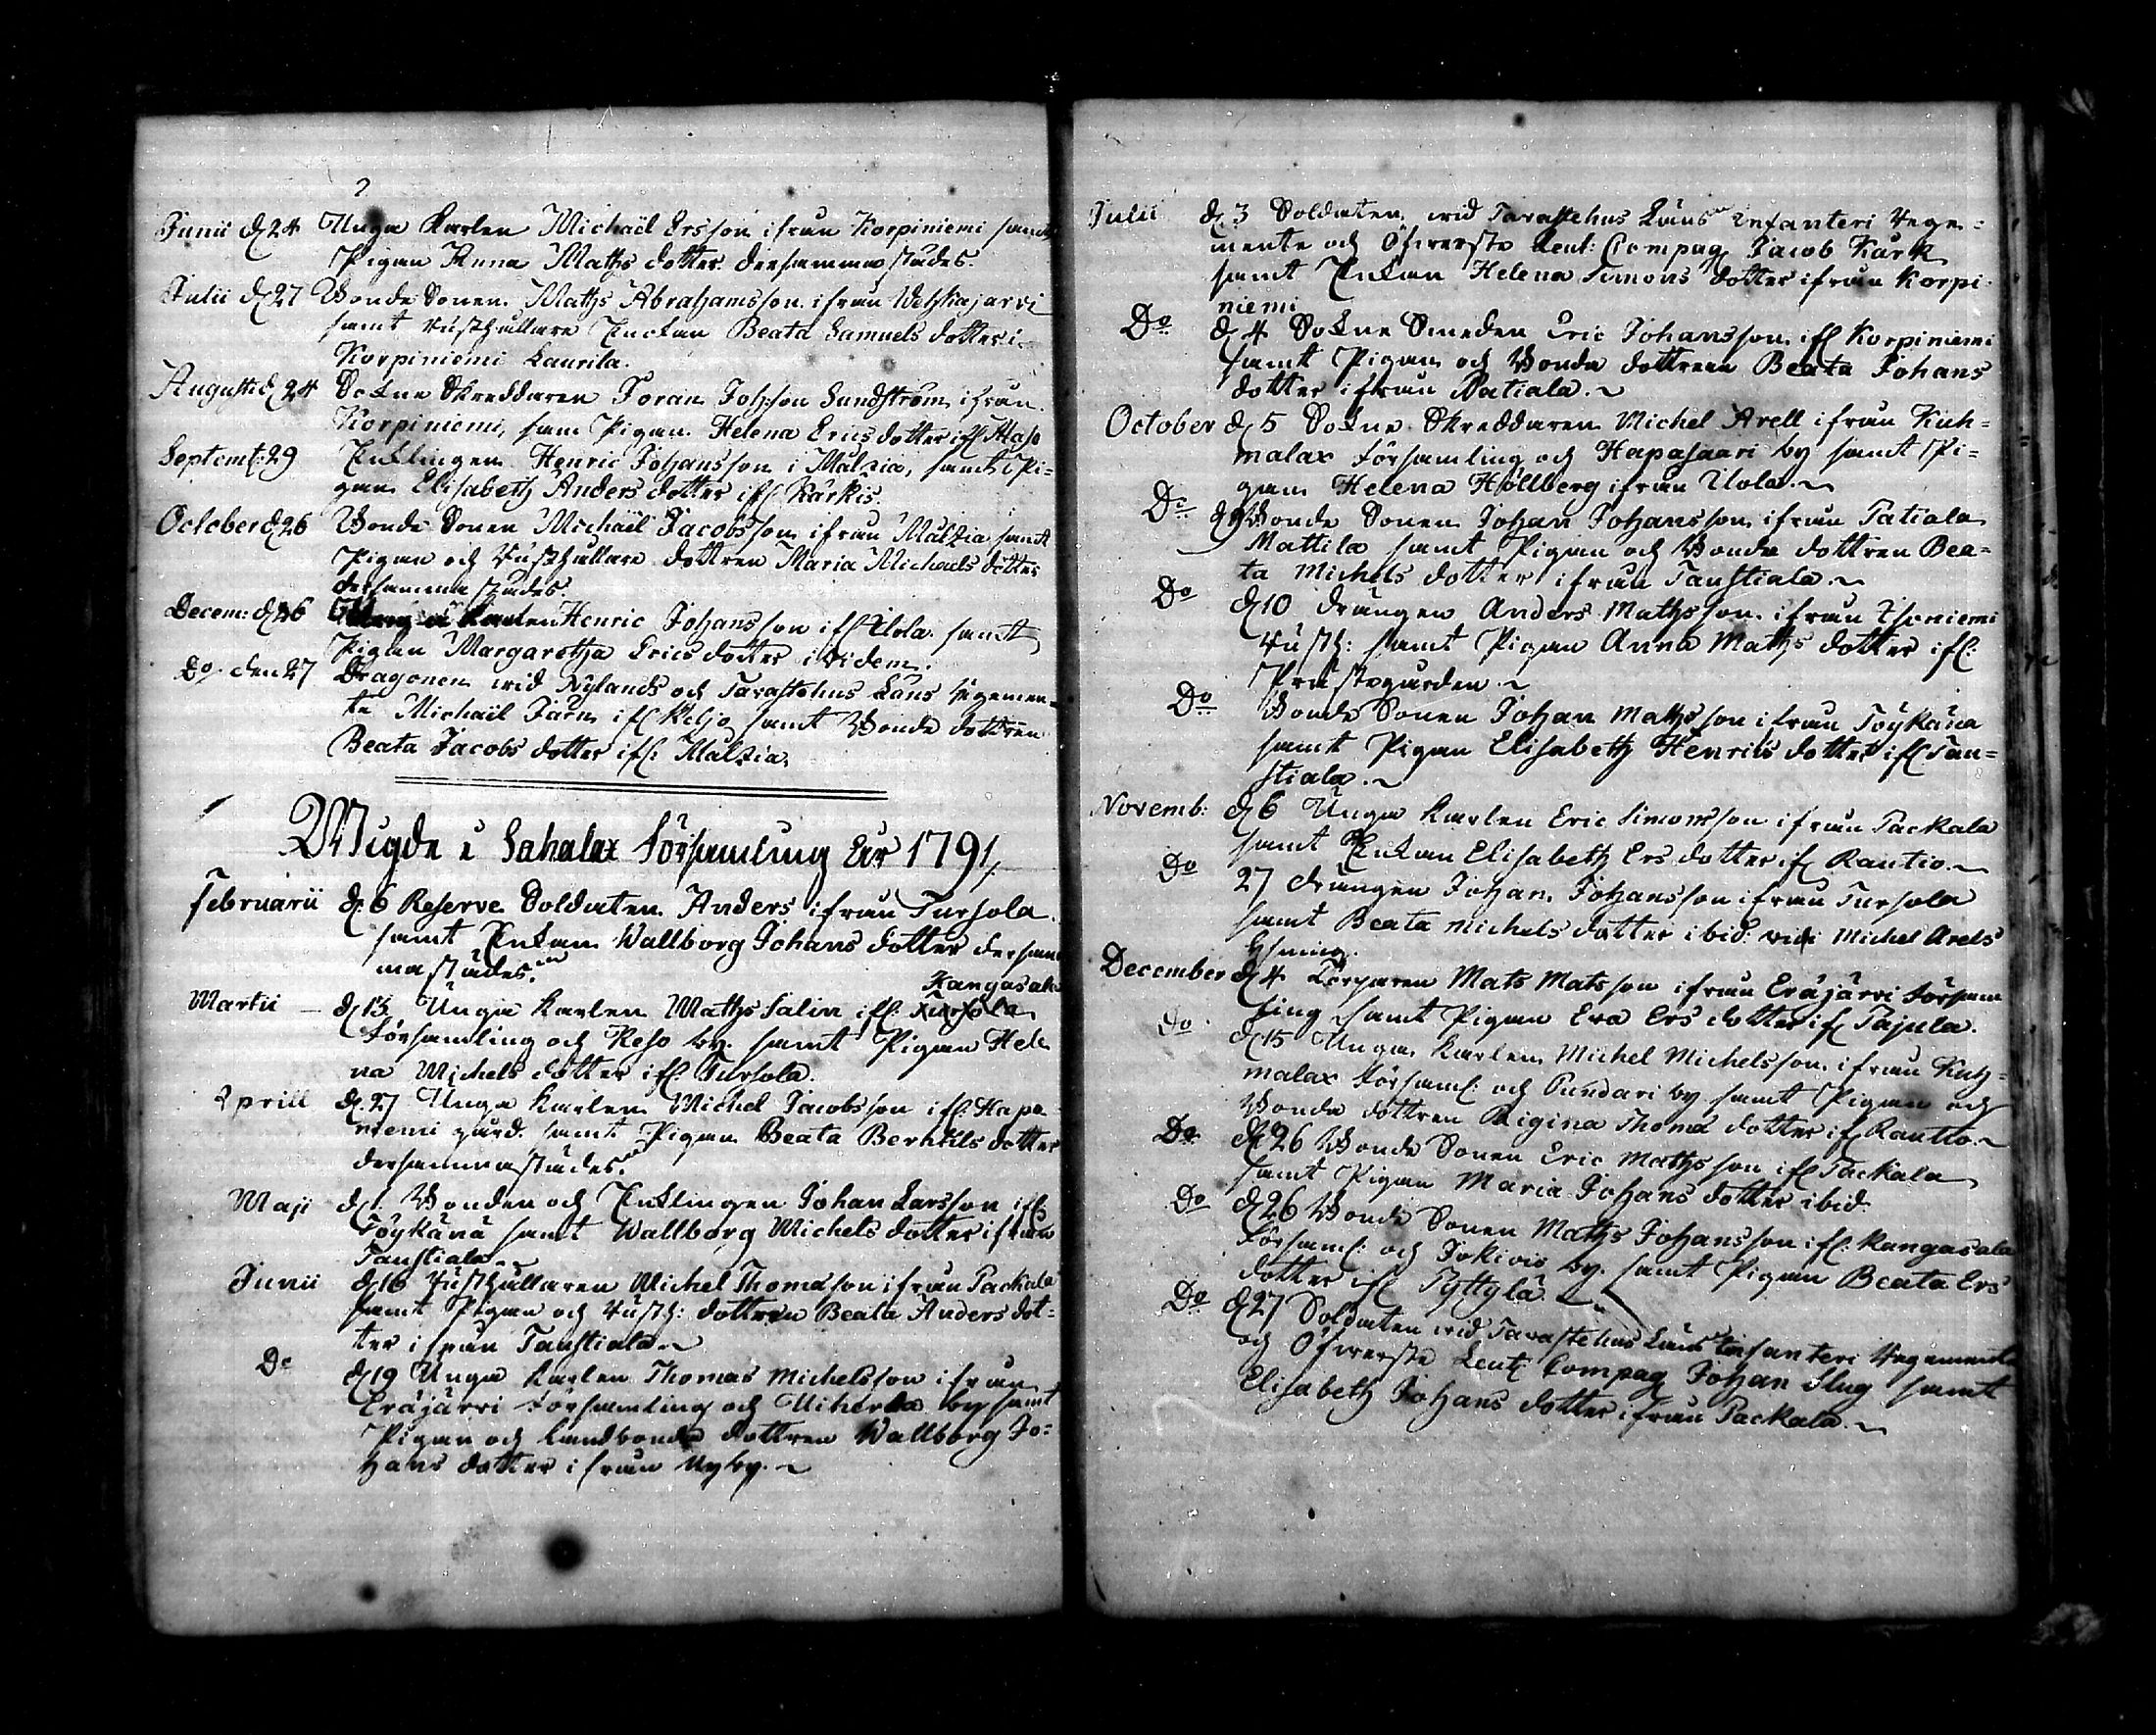 Junii d 24 Unga Karlen Michaël Ersson ifrån Korpiniemi samt
Pigan Anna Maths dotter dersammastädes.
Julii d 27 Bonde Sonen Maths Abrahamsson ifrån Wehkajarvi
samt Rusthållare Enckan Beata Samuels dotter i
Korpiniemi Laurila.
Augusti d 24 Sokne Skreddaren Joran Joh:son Sundström ifrån
Korpiniemi, sam Pigan Helena Erics dotter if:
Septemb: 29 Enklingen Henric Johansson i Malkia, samt Pi=
gan Elisabeth Anders dotter if: Kärkis.
October d 26 Bonde Sonen Michaël Jacobsson ifrån Malkia samt
Pigan och Rusthållare dottren Maria Michaels dotter
dersammastädes.
Decem: d 26 Unga Karlen Henric Johansson if: Ilola samt
Pigan Margaretha Erics dotter ibidem.
Do den 27 Dragonen wid Nylands och Tavastehus Läns Regemen=
te Michaël Järn if: Keljo samt Bonde dottren
Beata Jacobs dotter if: Malkia.
Wigde i Sahalax Församling År 1791,
Februarii d. 6 Reserve Soldaten Anders ifrån Tursola
samt Enkan Wallborg Johans dotter dersam
mastädes.
Kangasala
Martii d 13 Unga Karlen Maths Salin if: Tursola
Församling och Keso by samt Pigan Hele
na Michels dotter if: Tursola.
Aprill d. 27 Unga Karlen Michel Jacobsson if: Hapa
niemi gård samt Pigan Beata Berhtils dotter
dersammastädes.
Maji d 1. Bonden och Enklingen Johan Larsson if:
Töykänä samt Wallborg Michels dotter ifrån
Taustiala
Junii d 16 Rusthållaren Michel Thomasson ifrån Packala
samt Pigan och Rusth: dottren Beata Anders dot=
ter ifrån Taustiala.
Do d 19 Unga Karlen Thomas Michelsson ifrån
Eräjärvi Församling och Uiherla by samt
Pigan och Landbonde dottren Wallborg Jo=
hans dotter ifrån Nyby.
Julii d 3 Soldaten wid Tavastehus Läns Infanteri Rege=
mente och Öfwerste Leut: Compag Jacob Kärk
samt Enkan Helena Simons dotter ifrån Korpi
niemi
Do d 4 Sokne Smeden Eric Johansson if: Korpiniemi
samt Pigan och Bonde dottren Beata Johans
dotter ifrån Patiala.
October d 5 Sokne Skreddaren Michel Arell ifrån Kuh=
malax Församling och Hapasaari by samt Pi=
gan Helena Hollberg ifrån Ilola.
Do d 9 Bonde Sonen Johan Johansson ifrån Patiala
Mattila samt Pigan och Bonde dottren Bea=
ta Michels dotter ifrån Taustiala.
Do d 10 Drängen Anders Mathsson ifrån Isoniemi
Rusth: samt Pigan Anna Maths dotter if:
Prästegården.
Do Bonde Sonen Johan Mathsson ifrån Töykänä
samt Pigan Elisabeth Henrics dotter if: Tau=
stiala.
Novemb: d 6 Unga Karlen Eric Simonsson ifrån Packala
samt Enkan Elisabeth Ers dotter if: Rautio.
Do 27 Drängen Johan Johansson ifrån Tursola
samt Beata Michels dotter ibid: vidi Michel Arels
lysning.
December d 4 Torparen Mats Matsson ifrån Eräjärvi Försam
ling samt Pigan Eva Ers dotter if: Pajula.
Do d 15 Unga Karlen Michel Michelsson ifrån Kuh=
malax Församl: och Pundari by samt Pigan och
Bonde dottren Rigina Thomæ dotter if: Rautio.
Do d 26 Bonde Sonen Eric Mathsson if: Packala
samt Pigan Maria Johans dotter ibid
Do d 26 Bonde Sonen Maths Johansson if: Kangasala
Församl: och Jokiois by samt Pigan Beata Ers
dotter if: Pyttylä
Do d 27 Soldaten wid Tavastehus Läns Infanteri Regemente
och Öfwerste Leut Compag Johan Slug samt
Elisabeth Johans dotter ifrån Packala.